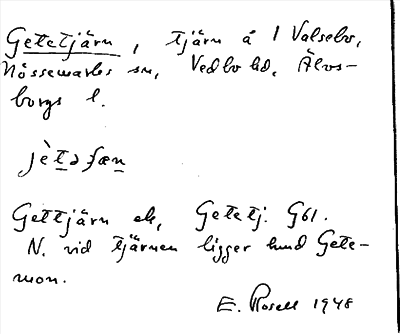 Getetjärn, tjärn å 1 Valsebo,
Nössemarks sn, Vedbo hd, Älvs-
borgs l.
jèt̲ə ʃæn̲
Gettjärn ek, Getetj. G61.
N. vid tjärnen ligger hmd Gete-
mon.
E. Rosell 1948